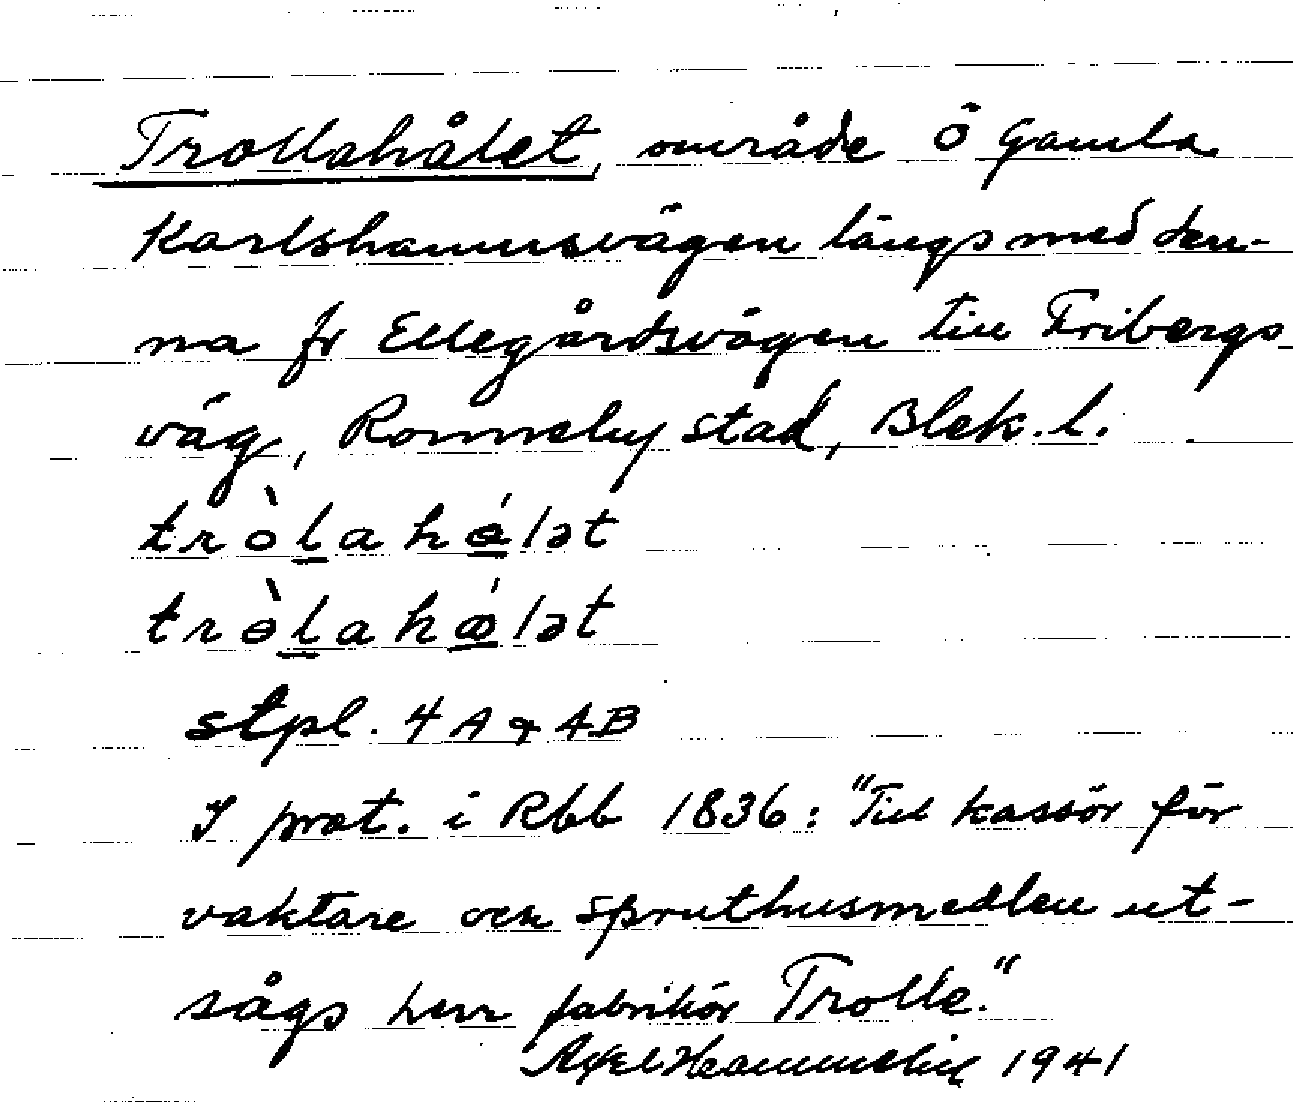 Trollahålet, område Ö Gamla
Karlshamnsvägen längs med den-
na fr Ellegårdsvägen till Fribergs
väg, Ronneby stad, Blek. l.
tròlahálət
trèlahǿlət
stpl. 4A & 4B
I prot. i Rbb 1836: "Till kassör för
vaktare och spruthusmedlen ut-
sågs herr fabrikör Trolle."
Axel 1941